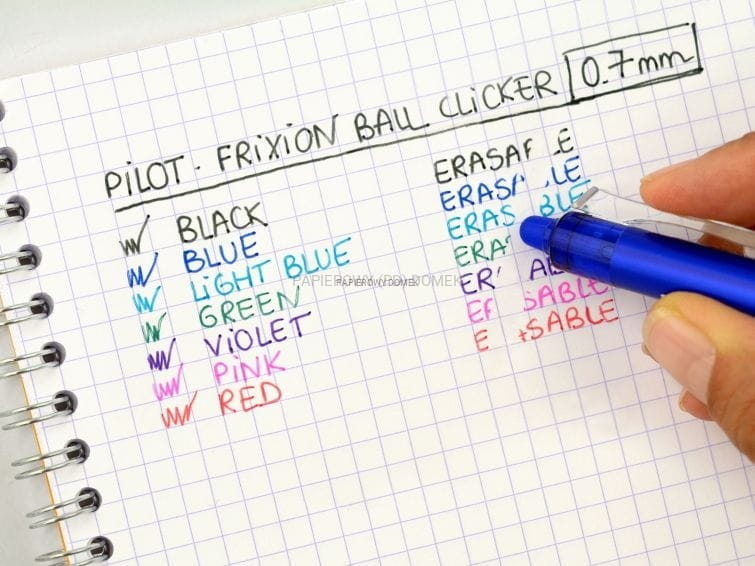 PILOT. FRIXION BALL CLICKER 0.7mm
BLACK
BLUE
LIGHT BLUE
GREEN
VIOLET
PINK
RED
ERASA E
ERAS LE
ERAS BLE
ERA
ER A
E SABLE
E SABLE
PAPIEROWY DOMEK